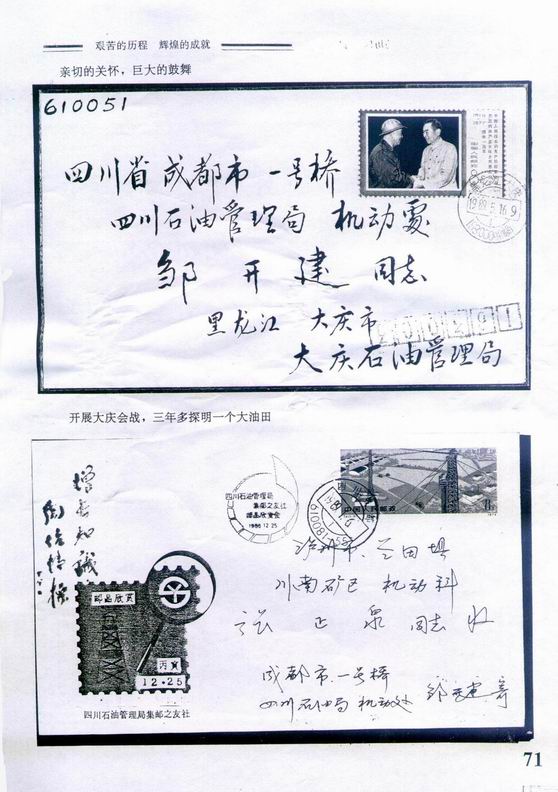 艰苦的历程 辉煌的成就
亲切的关怀，巨大的鼓舞
610051
四川省成都市一号桥
四川石油管理局 机动处
邹开建同志
黑龙江 大庆市
大庆石油管理局
1989.5.16.9
开展大庆会战，三年多探明一个大油田
增长知识
陶冶情操
四川石油管理局
集邮之友社
邮品欣赏会
1986.12.25
中国人民邮政
泸州市 兰田坝
川南矿区 机动科
张正泉同志收
成都市一号桥
四川石油局机动处 邹开建寄
邮品欣赏
丙寅
12·25
四川石油管理局集邮之友社
71